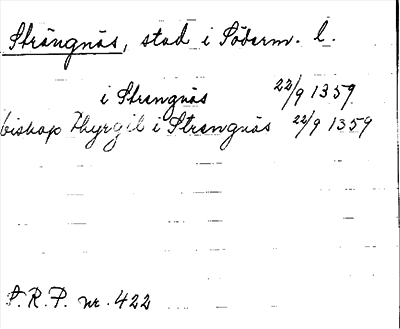 Strängnäs, stad i Söderm. l.
i Strengnäs 22/9 1359
biskop Thyrgil i Strengnäs 22/9 1359
S.R.P. nr. 422